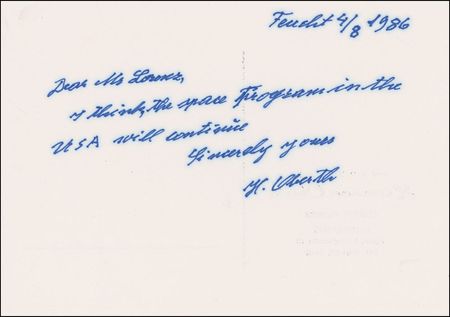 Feucht 4/8 1986
Dear Mr Lorenz,
I think, the space Program in the
USA will continue
Sincerely yours
H. Oberth